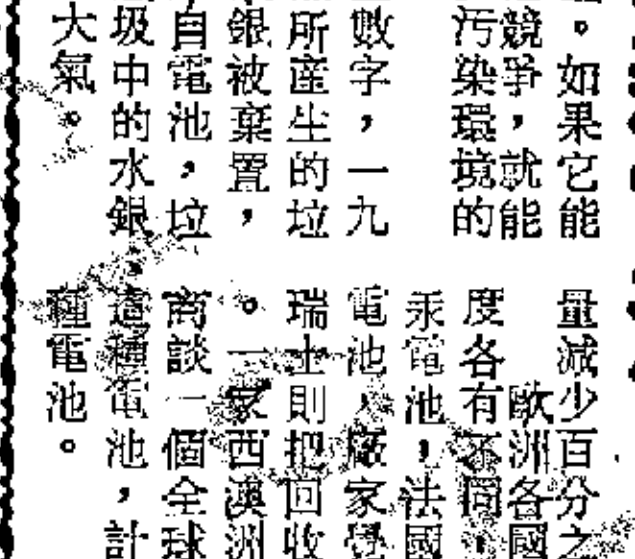 。如果它能
競爭，就能
污染環境的
數字，一九
所產生的垃
銀被棄置，
自電池，垃
圾中的水銀
大氣。
量減少百分之
歐洲各國
度各有不同，
汞電池，法國
電池，廠家覺
瑞士則把回收
。一家西澳洲
商談一個全球
這種電池，計
種電池。